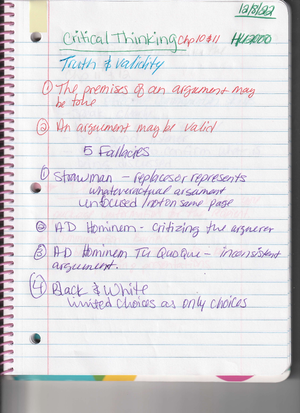 12/8/22
Critical Thinking Chp 10 & 11
Truth & Validity
① The premises of an argument may
be true
② An argument may be valid
5 Fallacies
① Strawman - replaces or represents
whatever actual argument
unfocused / not on same page
② AD Hominem - Critizing the arguer
③ AD Hominem Tu Quoque - inconsistent
argument.
④ Black & White
limited choices as only choices